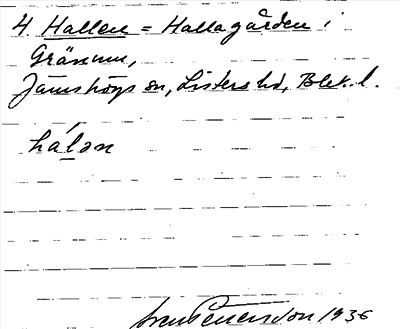 4 Hallen = Hallagården i
Gränum,
Jämshögs sn, Listers hd, Blek. l.
hálan
Sven Benson 1936